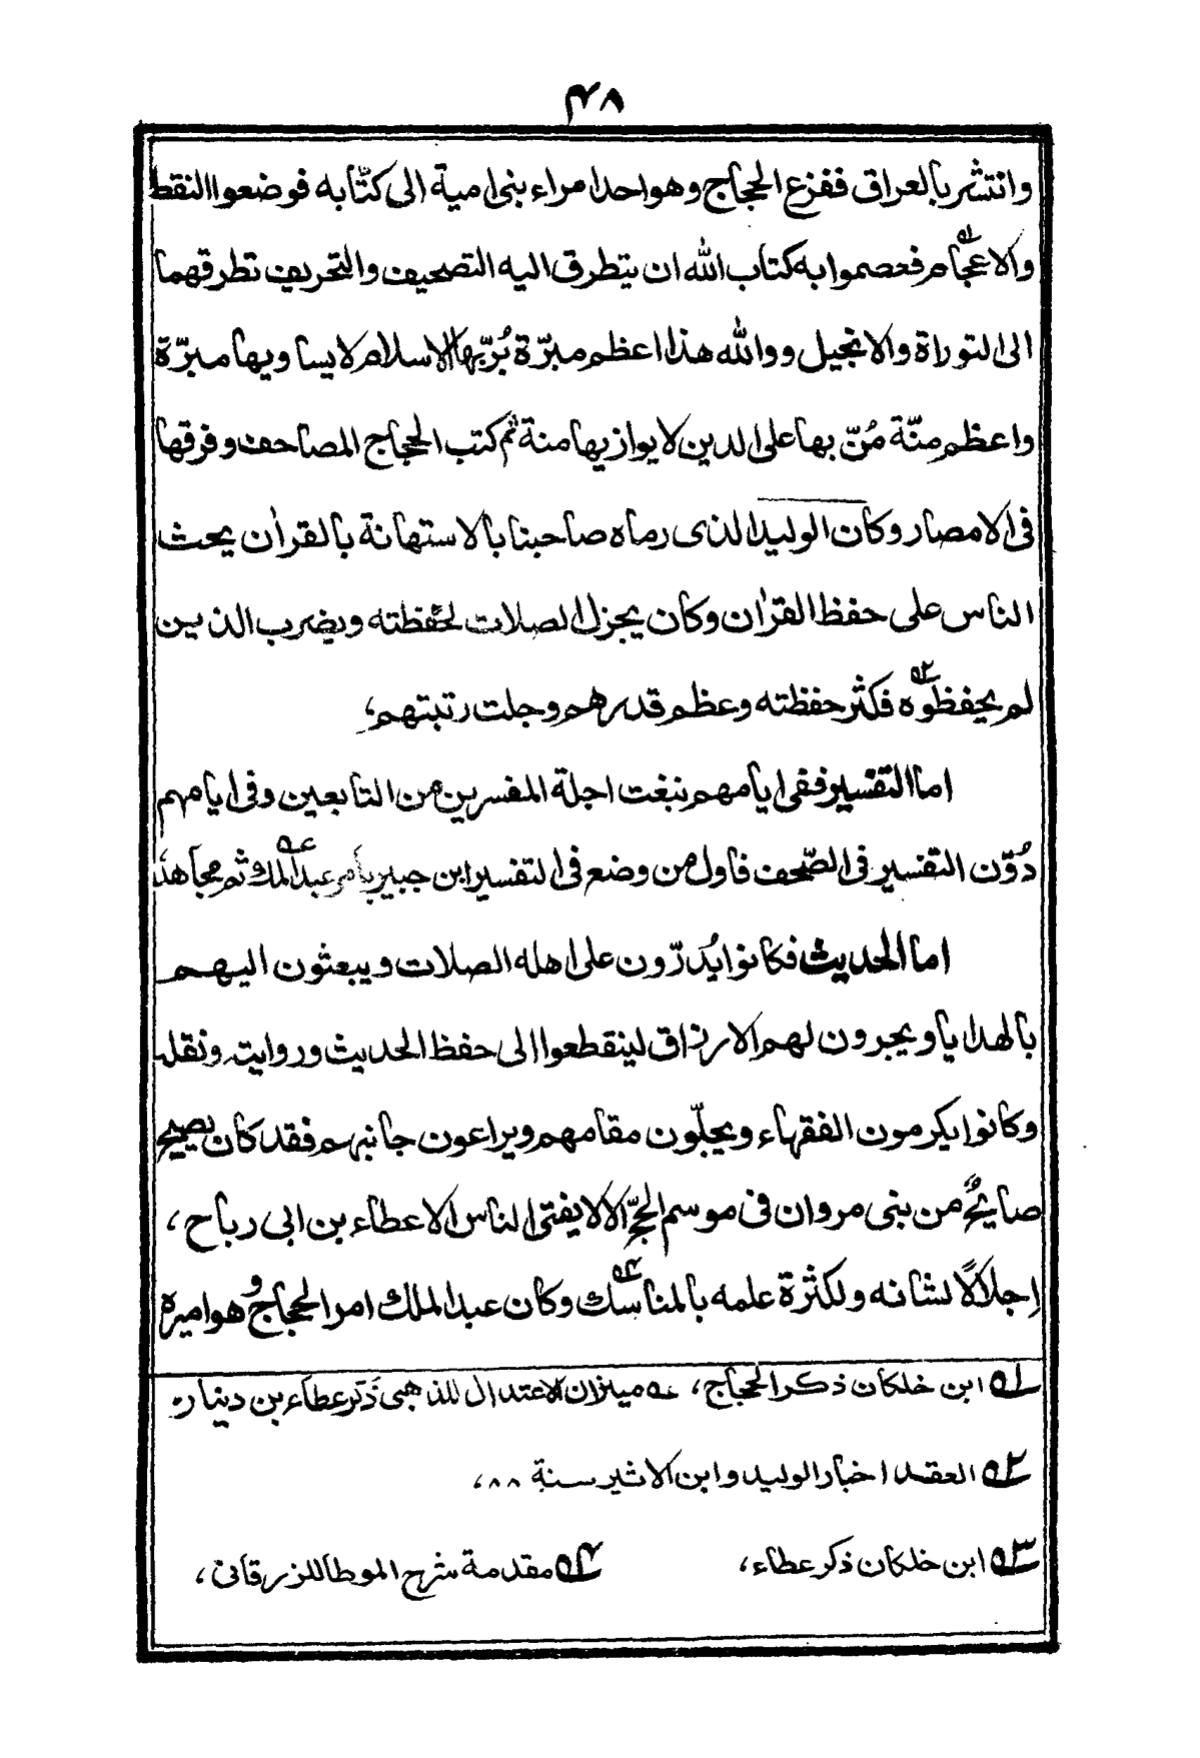 ۴۸
وانتشر بالعراق ففزع الحجاج وهو احد امراء بنی امية الی كتّابه فوضعوا النقط
والاعجام ۱؎ فعصموا به كتاب الله ان يتطرق اليه التصحيف والتحريف تطرقهما
الی التوراة والانجيل ووالله هذا اعظم مبرّة بُرّ بها الاسلام لا يساويها مبرّة
واعظم منّة مُنّ بها علی الدين لا يوازيها منة ثم كتب الحجاج المصاحف وفرقها
فی الامصار وكان الوليد الذی رماه صاحبنا بالاستهانة بالقراٰن يحث
الناس علی حفظ القراٰن وكان يجزل الصلات لحفظته ويضرب الذين
لم يحفظوه ۲؎ فكثر حفظته وعظم قدرهم وجلت رتبتهم،
اما التفسير ففی ايامهم نبغت اجلة المفسرين من التابعين وفی ايامهم
دُوّن التفسير فی الصّحف فاول من وضع فی التفسير ابن جبير بامر عبد الملك ؎ ثم مجاهد
اما الحديث فكانوا يُدرّون علی اهله الصلات ويبعثون اليهم
بالهدايا ويجرون لهم الارزاق لينقطعوا الی حفظ الحديث وروايته ونقله
وكانوا يكرمون الفقهاء ويجلّون مقامهم ويراعون جانبهم فقد كان يصيح
صايحٌ من بنی مروان فی موسم الحجّ الا لا يفتی الناس الا عطاء بن ابی رباح،
اِجلالًا لشانه ولكثرة علمه بالمناسك ۳؎ وكان عبد الملك امر الحجاج وهو اميره
۱؎ ابن خلكان ذكر الحجاج، ؎ ميزان الاعتدال للذهبی ذكر عطاء بن دينار
۲؎ العقد اخبار الوليد وابن الاثير سنة ۸۸،
۳؎ ابن خلكان ذكر عطاء، ۴؎ مقدمة شرح الموطا للزرقانی،